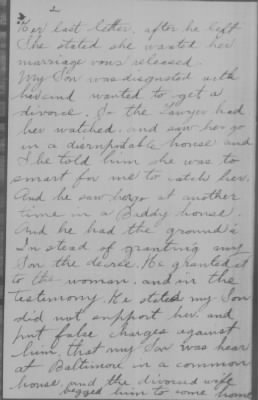 2
Her last letter, after he left
She stated she wanted her
marriage vows released.
My Son was disgusted with
her and wanted to get a
divorce. So the Lawyer had
her watched. and saw her go
in a house and
She told him she was to
smart for me to catch her.
And he saw her go at another
time in a Biddy house.
And he had the grounds
In stead of granting my
Son the decree. He granted it
to the woman. and in the
testimony. He stated my Son
did not support her. and
put false charges against
him, that my Son was hear
at Baltimore in a common
house, and the divorced wife
begged him to some home